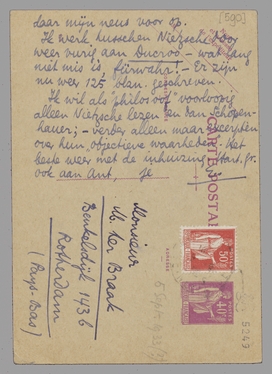 daar mijn neus voor op.
Ik werk tusschen Nietzsche door
weer vurig aan Ducroo.
met mis is fürwahr! - Er zijn
nu weer 125 blan. geschreven.
Ik wil als "philosoof" voorloopig
alleen Nietzsche lezen en dan Schopen-
hauer; - verder alleen maar
over hun "objectieve waarheden". Het
beste weer met de inhuizing. Hart. gr.
ook aan Ant, je
[590]
CARTE POSTALE
Monsieur
M. ter Braak
Bentelsdijk 143b
Rotterdam
(Pays-Bas)
50c
40c
5249